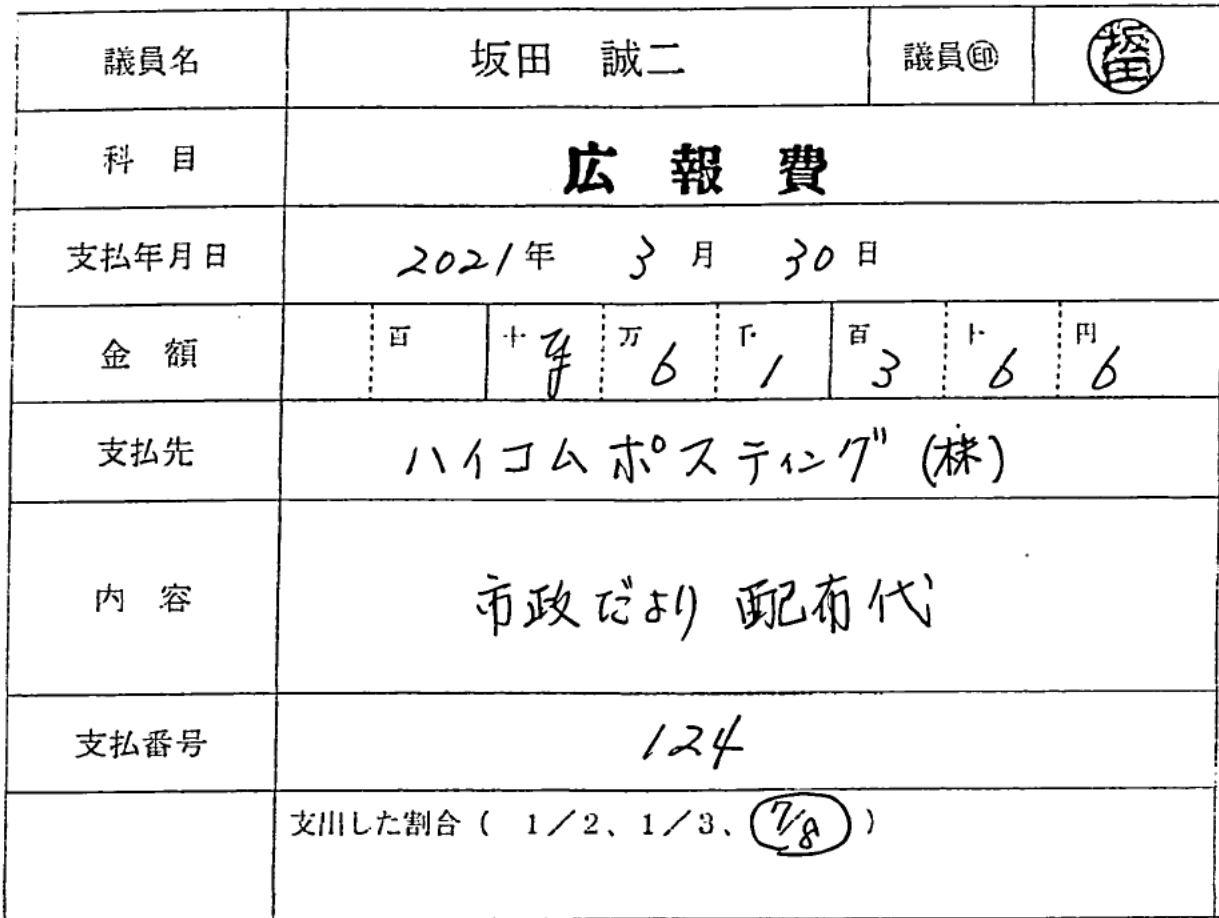 議員名 坂田 誠二 議員㊞ 坂田
科 目 広 報 費
支払年月日 2021年 3月 30日
金 額 百 十 万 6 千 1 百 3 十 6 円 6
支払先 ハイコムポスティング(株)
内 容 市政だより 配布代
支払番号 124
支出した割合( 1/2、1/3、7/8 )